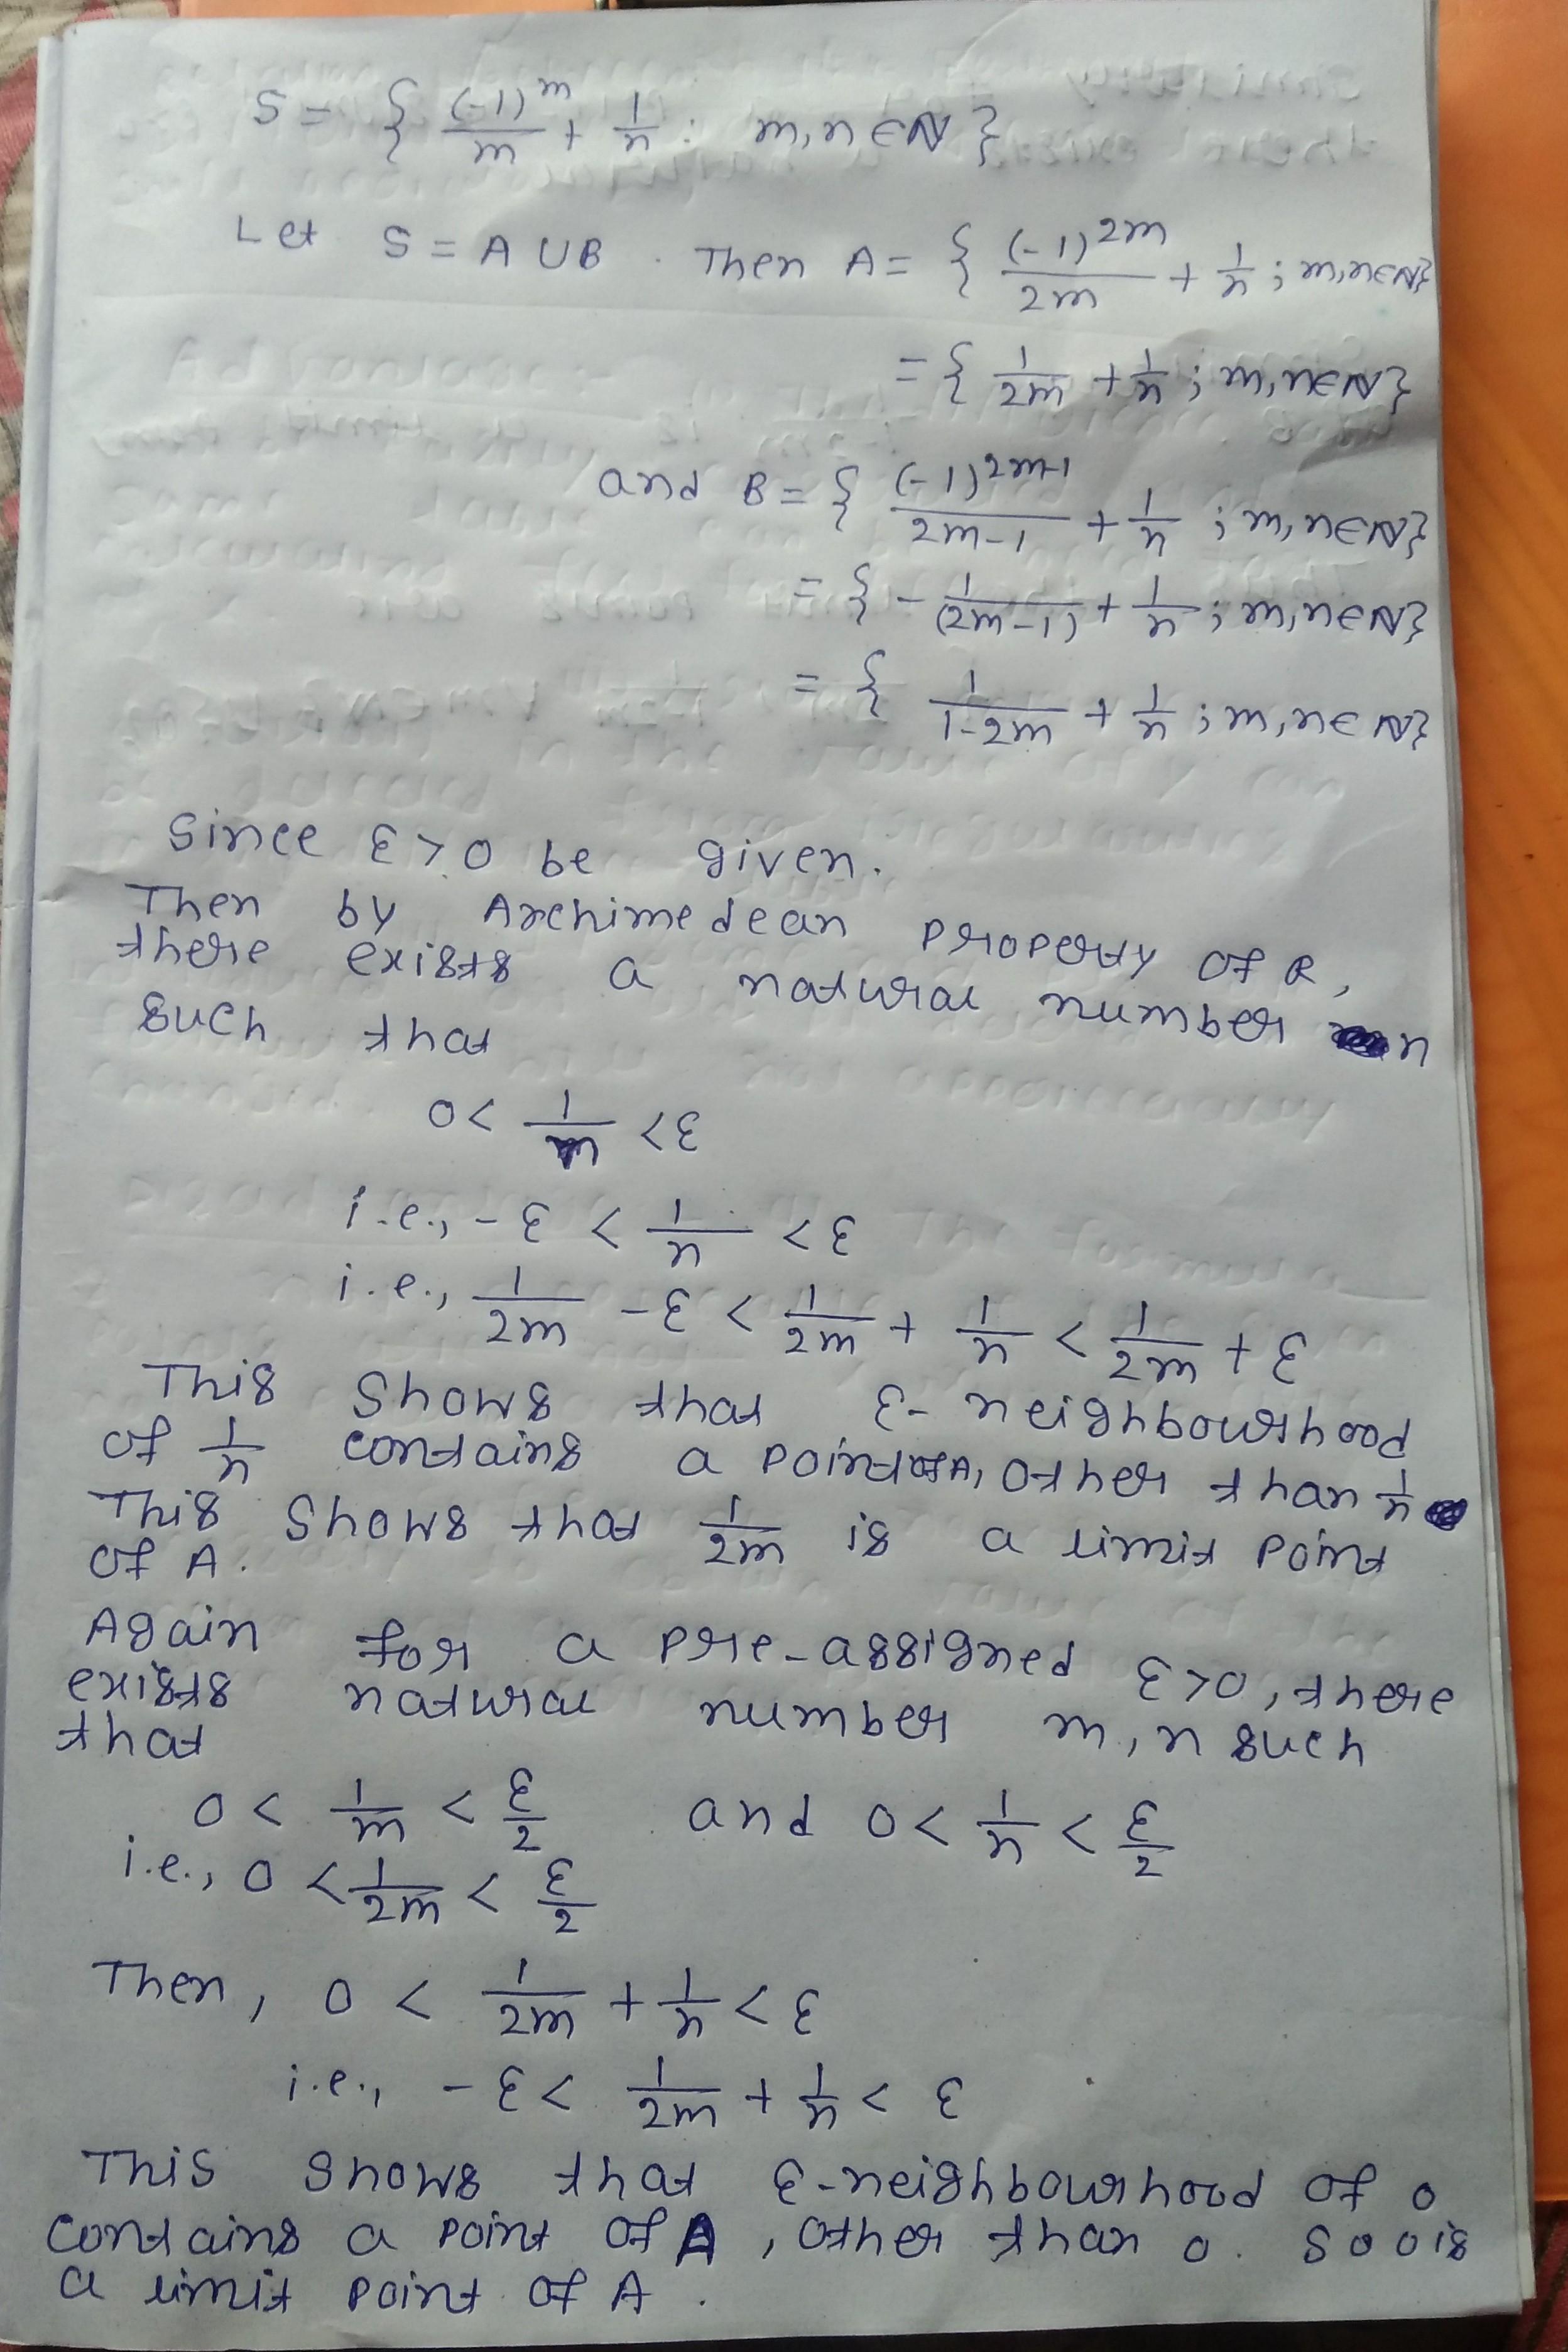 S = { (-1)^m/m + 1/n : m,n ∈ N }
Let S = A ∪ B . Then A = { (-1)^2m/2m + 1/n ; m,n∈N}
= { 1/2m + 1/n ; m,n∈N}
and B = { (-1)^2m-1/2m-1 + 1/n ; m,n∈N}
= { - 1/(2m-1) + 1/n ; m,n∈N}
= { 1/1-2m + 1/n ; m,n∈N}
Since ε > 0 be given.
Then by Archimedean property of R,
there exists a natural number n
such that
0 < 1/n < ε
i.e., -ε < 1/n < ε
i.e., 1/2m - ε < 1/2m + 1/n < 1/2m + ε
This shows that ε- neighbourhood
of 1/n contains a point of A, other than 1/n
This shows that 1/2m is a limit point
of A.
Again for a pre-assigned ε>0, there
exists natural number m, n such
that
0 < 1/m < ε/2 and 0 < 1/n < ε/2
i.e., 0 < 1/2m < ε/2
Then, 0 < 1/2m + 1/n < ε
i.e., -ε < 1/2m + 1/n < ε
This shows that ε-neighbourhood of 0
contains a point of A, other than 0. So 0 is
a limit point of A.